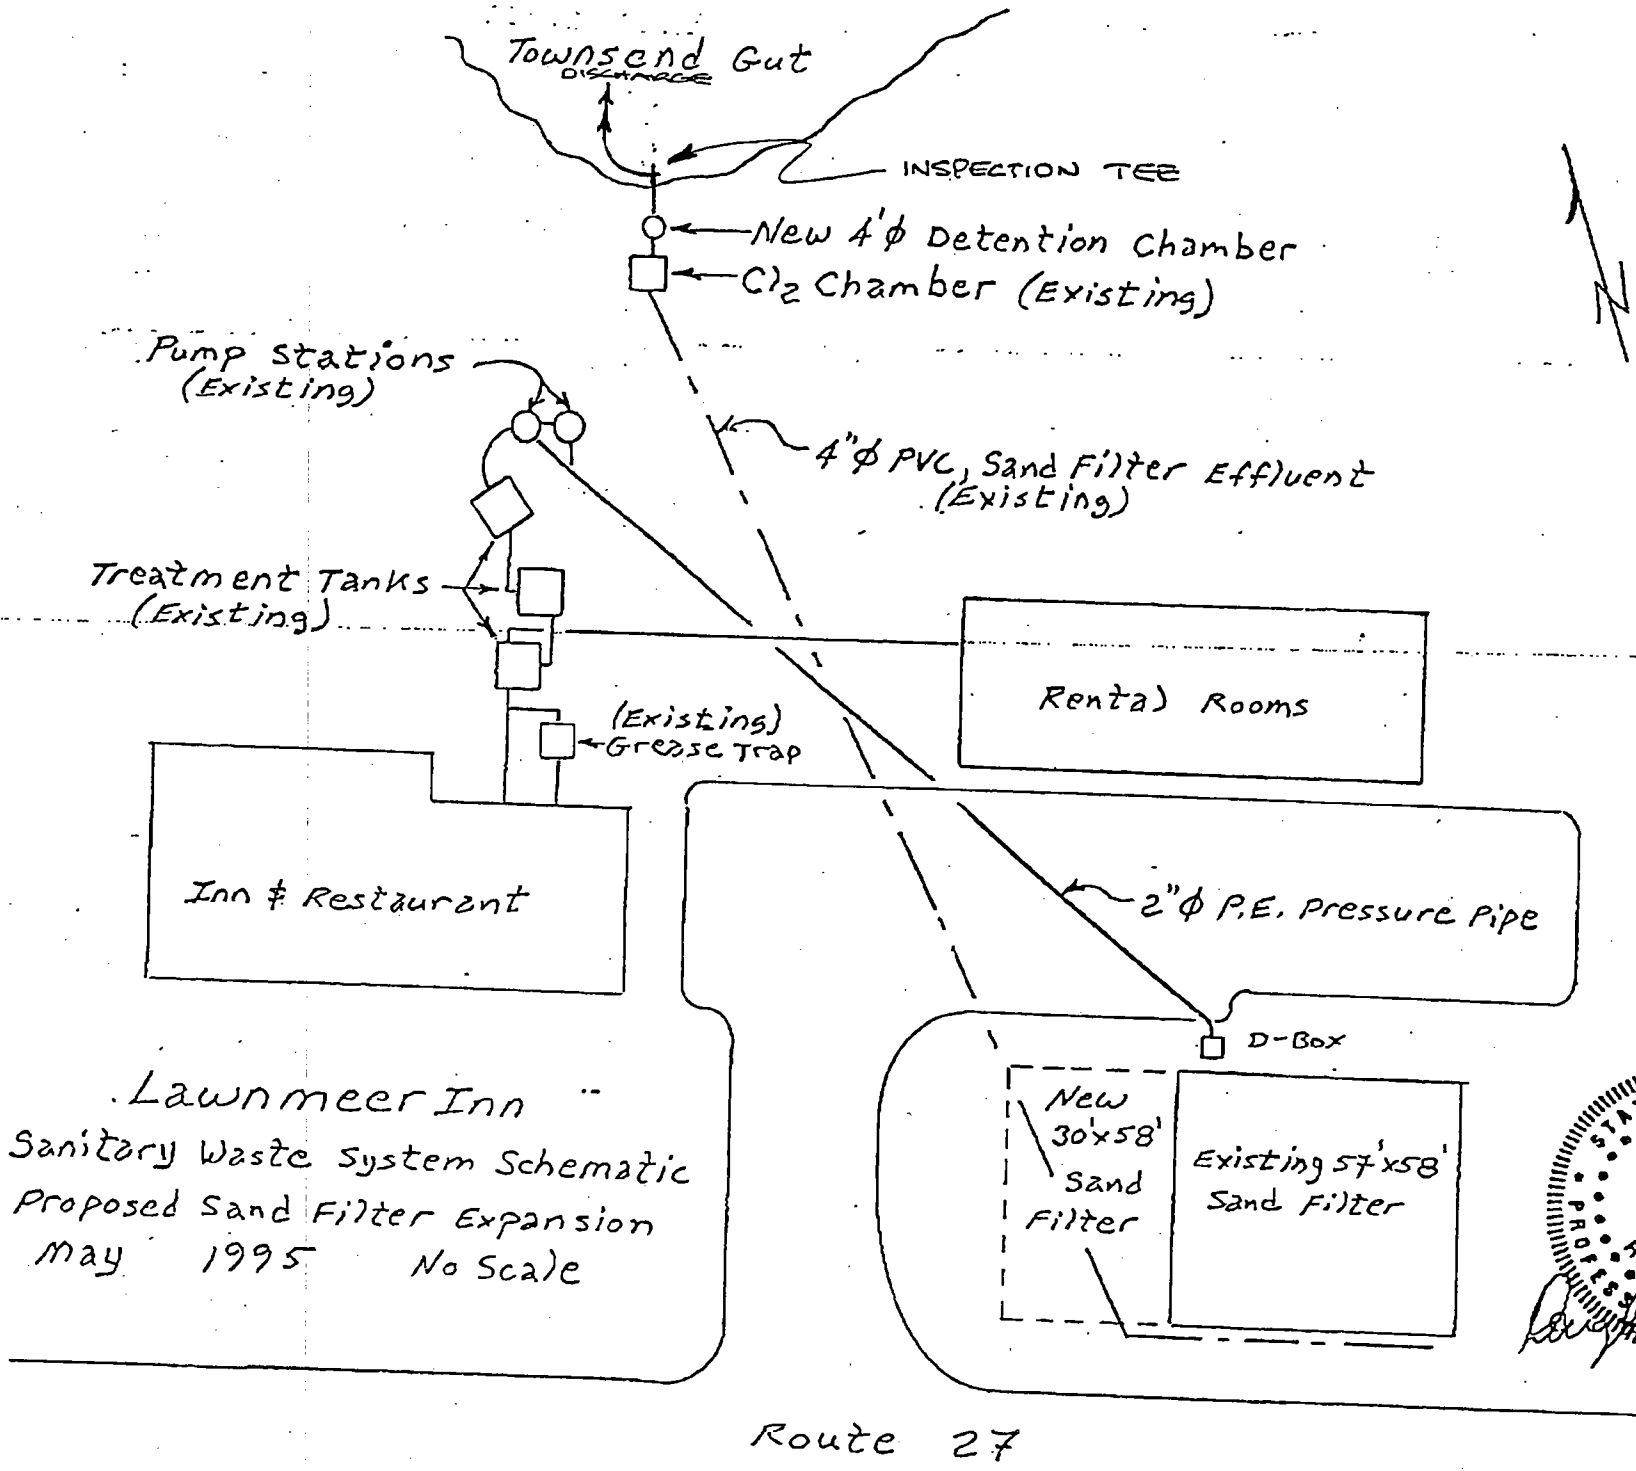 Townsend Gut
DISCHARGE
INSPECTION TEE
New 4'φ Detention Chamber
Cl2 Chamber (Existing)
N
Pump Stations
(Existing)
4"φ PVC, Sand Filter Effluent
(Existing)
Treatment Tanks
(Existing)
Rental Rooms
(Existing)
Grease Trap
Inn & Restaurant
2"φ P.E. Pressure Pipe
D-Box
New
30'x58'
Sand
Filter
Existing 57'x58'
Sand Filter
Lawnmeer Inn
Sanitary Waste System Schematic
Proposed Sand Filter Expansion
May 1995 No Scale
Route 27
STA
PROFESS